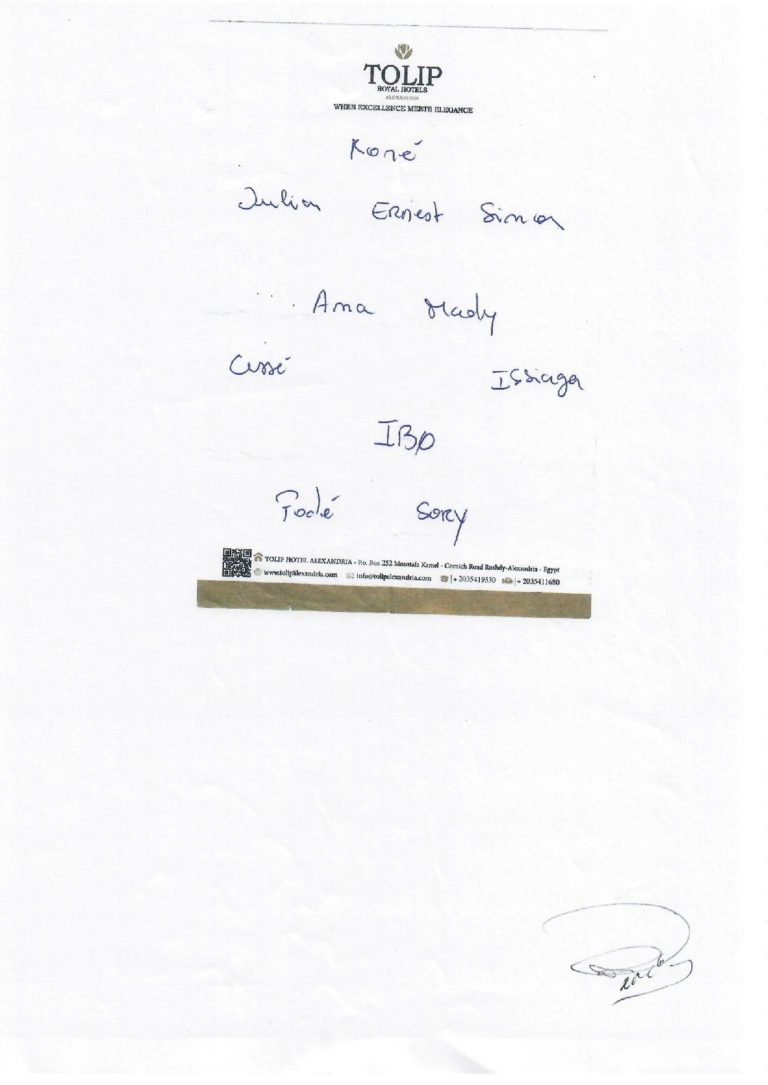 TOLIP
ROYAL HOTELS
ALEXANDRIA
WHEN EXCELLENCE MEETS ELEGANCE
Koné
Julian Ernest Siman
Ama Mady
Cissé Issiaga
IBO
Fodé Sory
TOLIP HOTEL ALEXANDRIA - P.o. Box 252 Moustafa Kamel - Cornich Road Roshdy-Alexandria - Egypt
www.tolipalexandria.com info@tolipalexandria.com + 2035419330 + 2035411680